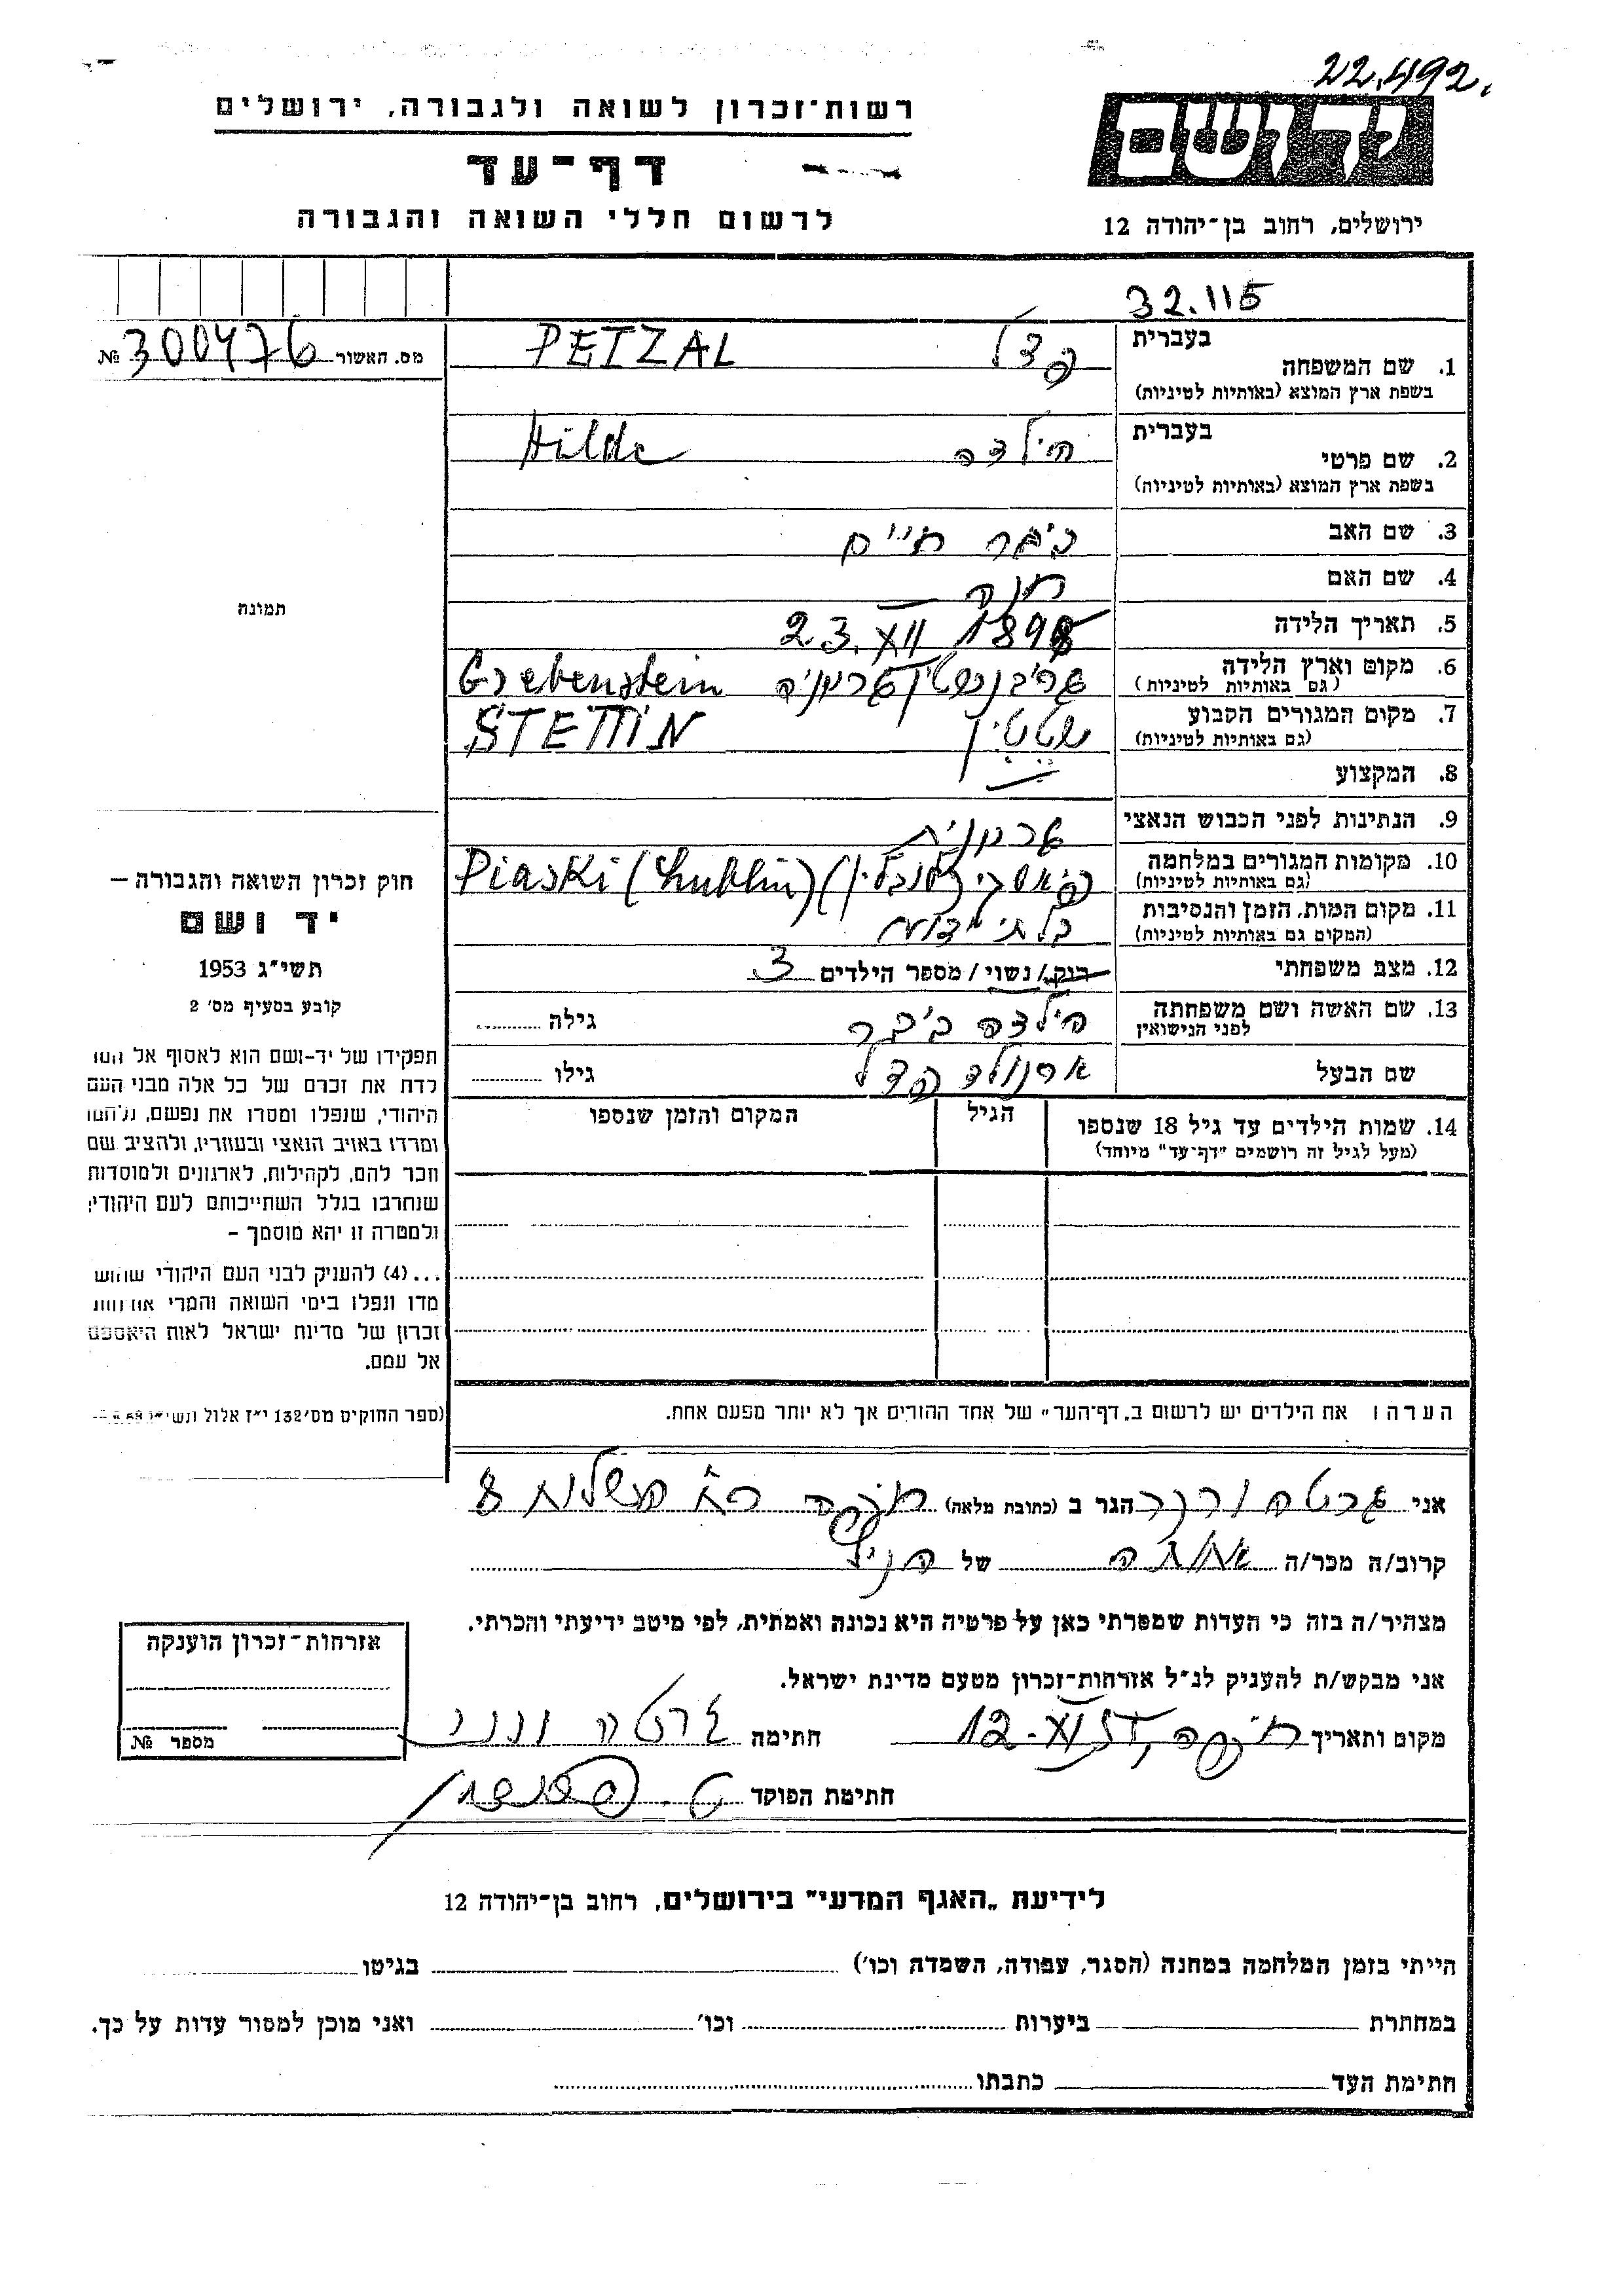 22.492.
רשות־זכרון לשואה ולגבורה, ירושלים
יד ושם
דף־עד
לרשום חללי השואה והגבורה
ירושלים, רחוב בן־יהודה 12
32.115
מס. האשור 300476 №
בעברית
1. שם המשפחה פצל PETZAL
בשפת ארץ המוצא (באותיות לטיניות)
בעברית
2. שם פרטי הילדה Hilde
בשפת ארץ המוצא (באותיות לטיניות)
3. שם האב חיים
4. שם האם חנה
5. תאריך הלידה 23.XII 1898
6. מקום וארץ הלידה גריבנשטין גרמניה Grebenstein
(גם באותיות לטיניות)
7. מקום המגורים הקבוע שטטין STETTIN
(גם באותיות לטיניות)
8. המקצוע
9. הנתינות לפני הכבוש הנאצי גרמנית
10. מקומות המגורים במלחמה פיאסקי (לובלין) Piaski (Lublin)
(גם באותיות לטיניות)
11. מקום המות, הזמן והנסיבות בלתי ידוע
(המקום גם באותיות לטיניות)
12. מצב משפחתי רוק/ נשוי / מספר הילדים 3
13. שם האשה ושם משפחתה הילדה גילה
לפני הנישואין
שם הבעל ארנולד פצל גילו
14. שמות הילדים עד גיל 18 שנספו הגיל המקום והזמן שנספו
(מעל לגיל זה רושמים "דף־עד" מיוחד)
תמונה
חוק זכרון השואה והגבורה –
יד ושם
תשי״ג 1953
קובע בסעיף מס׳ 2
תפקידו של יד-ושם הוא לאסוף אל
לדת את זכרם של כל אלה מבני העם
היהודי, שנפלו ומסרו את נפשם, נלחמו
ומרדו באויב הנאצי ובעוזריו, ולהציב שם
וזכר להם, לקהילות, לארגונים ולמוסדות
שנחרבו בגלל השתייכותם לעם היהודי;
ולמטרה זו יהא מוסמך –
...(4) להעניק לבני העם היהודי שהוש
מדו ונפלו בימי השואה והמרי אזרחות
זכרון של מדינת ישראל לאות היאספם
אל עמם.
(ספר החוקים מס׳ 132 י״ז אלול תשי״ג
הערה: את הילדים יש לרשום ב„דף־העד" של אחד ההורים אך לא יותר מפעם אחת.
אני גרטה ורנר הגר ב (כתובת מלאה) חיפה 8
קרוב/ה מכר/ה אחתה של הנ״ל
מצהיר/ה בזה כי העדות שמסרתי כאן על פרטיה היא נכונה ואמתית, לפי מיטב ידיעתי והכרתי.
אני מבקש/ת להעניק לנ״ל אזרחות־זכרון מטעם מדינת ישראל.
מקום ותאריך חיפה, 12-XI חתימה גרטה ורנר
חתימת הפוקד
אזרחות־זכרון הוענקה
מספר №
לידיעת „האגף המדעי" בירושלים, רחוב בן־יהודה 12
הייתי בזמן המלחמה במחנה (הסגר, עבודה, השמדה וכו׳) בגיטו
במחתרת ביערות וכו׳ ואני מוכן למסור עדות על כך.
חתימת העד כתבתו